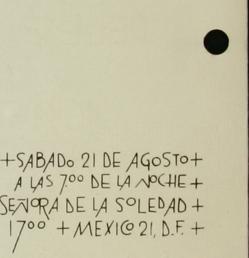 +SABADO 21 DE AGOSTO+
A LAS 7.00 DE LA NOCHE+
SEÑORA DE LA SOLEDAD+
1700 + MEXICO 21, D.F. +